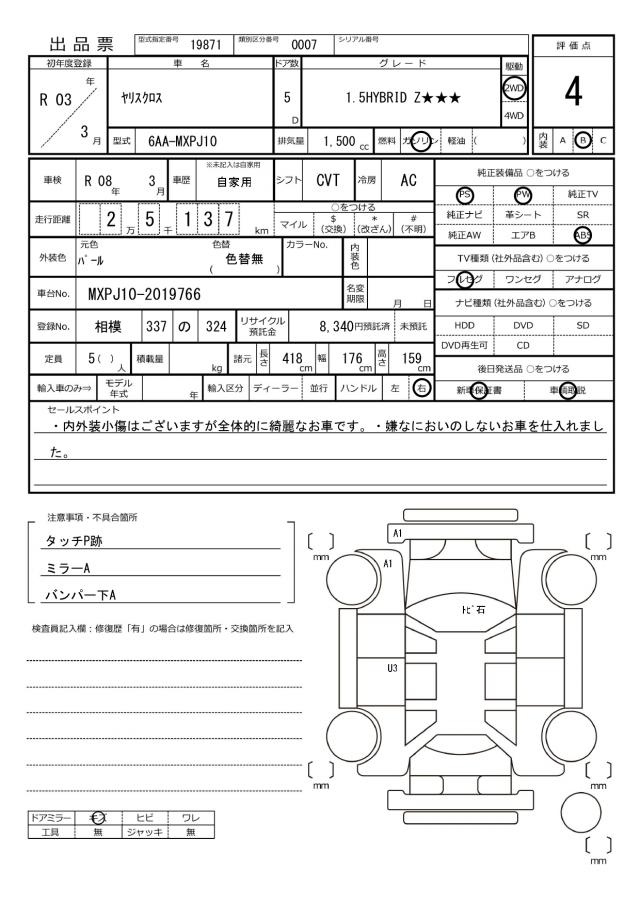 出品票 型式指定番号 19871 類別区分番号 0007 シリアル番号
評価点
4
初年度登録 車名 ドア数 グレード 駆動
R 03 年 3 月 ヤリスクロス 5 D 1.5HYBRID Z★★★ 2WD
4WD
型式 6AA-MXPJ10 排気量 1,500 cc 燃料 ガソリン 軽油 ( )
内装 A B C
車検 R 08 年 3 月 車歴 ※未記入は自家用 自家用 シフト CVT 冷房 AC
走行距離 2 万 5 千 1 3 7 km
○をつける
マイル $ (交換) * (改ざん) # (不明)
外装色 元色 パール 色替 ( 色替無 ) カラーNo. 内装色
車台No. MXPJ10-2019766 名変期限 月 日
登録No. 相模 337 の 324 リサイクル預託金 8,340円預託済 未預託
定員 5( ) 人 積載量 kg 諸元 長さ 418 cm 幅 176 cm 高さ 159 cm
輸入車のみ⇒ モデル年式 年 輸入区分 ディーラー 並行 ハンドル 左 右
純正装備品 ○をつける
PS PW 純正TV
純正ナビ 革シート SR
純正AW エアB ABS
TV種類(社外品含む) ○をつける
フルセグ ワンセグ アナログ
ナビ種類(社外品含む) ○をつける
HDD DVD SD
DVD再生可 CD
後日発送品 ○をつける
新車保証書 車輌取説
セールスポイント
・内外装小傷はございますが全体的に綺麗なお車です。・嫌なにおいのしないお車を仕入れまし
た。
注意事項・不具合箇所
タッチP跡
ミラーA
バンパー下A
検査員記入欄：修復歴「有」の場合は修復箇所・交換箇所を記入
ドアミラー キズ ヒビ ワレ
工具 無 ジャッキ 無
A1
A1
トビ石
U3
[ ] mm
[ ] mm
[ ] mm
[ ] mm
[ ] mm